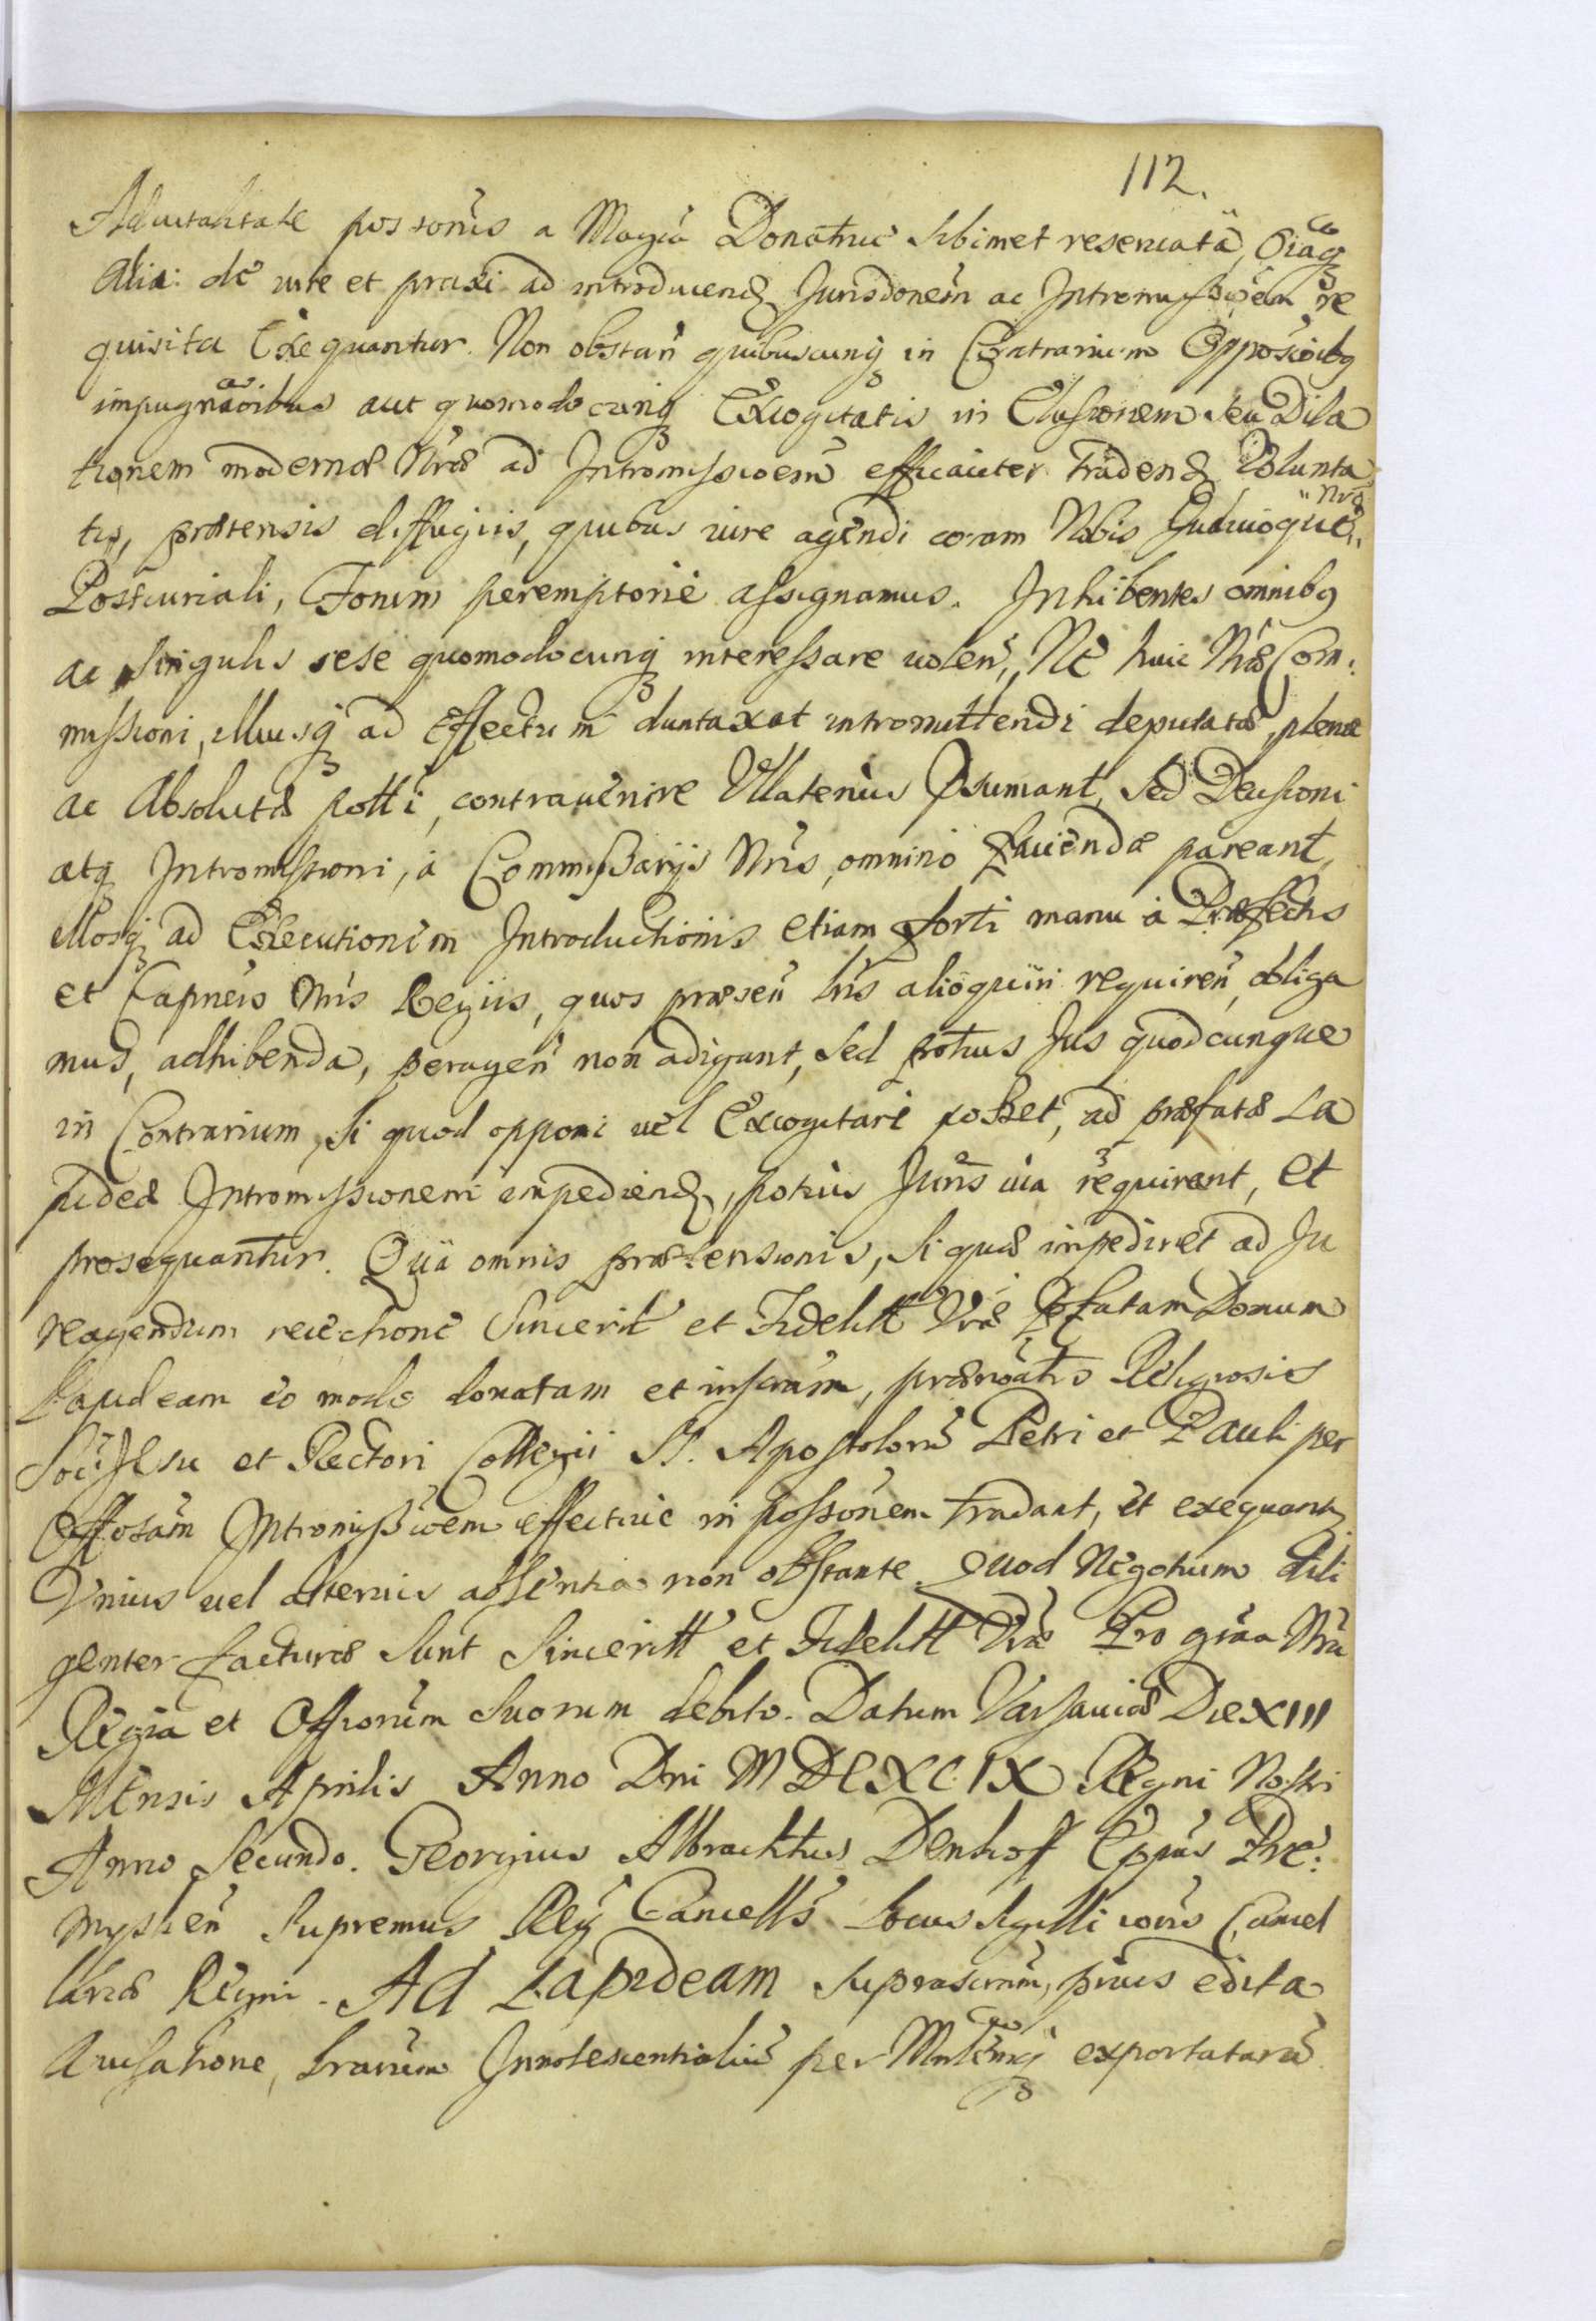 112.
Aduitalitate possonis a Magca Donatrice sibimet reseruata, Oiaq
Alia: de iure et praxi ad introducend Jurisdonem ac Intromissoem re
quisita Exequantur. Non obstan quibuscunq in Contrarium Opposicibq
impugnaoibus aut quomodocunq Excogitatis in Elusionem seu Dila
tionem modernæ Nræ ad Intromissioem efficaciter tradend Volunta
tis, prætensis diffugiis, quibus iure agendi coram Nobis Iudicioque Nro
Postcuriali, Forum peremptorie assignamus. Inhibentes omnibq
ac singulis sese quomodocunq interessare uolen, Ne huic Nræ Com:
missioni, illiusq ad Effectum duntaxat intromittendi deputatæ, plenæ
ac Absolutæ potti, contrauenire Vllatenus Psumant, Sed Decisioni
atq Intromissioni, à Commissarijs Nris, omnino faciendæ pareant,
illosq ad Executionem Introductionis etiam forti manu à Præfectis
et Capneis Nris Regiis, quos præsen lris alioquin requiren, obliga
mus, adhibenda, peragen non adigant, sed potius Jus quodcunque
in Contrarium, si quod opponi uel Excogitari posset, ad præfatæ La
pideæ Intromissionem impediend, potius Juris uia requirant, et
prosequantur. Qua omnis prætensionis, si quæ impediret ad Ju
re agendum reiectione Sincerit et Fidelitt Vræ Pfatam Domum
Lapideam eo modo donatam et inscram, prænoatis Religiosis
Soc: Jesu et Rectori Collegii SS. Apostoloru Petri et Pauli per
Offosam Intromissioem effectiue in possonem tradant, et exequant
Vnius uel alterius absentia non obstante. Quod Negotium dili
genter facturæ sunt Sinceritt et Fidelitt Vræ Pro graa Nra
Regia et Officorum suorum debito. Datum Varsauiæ Die XIII
Mensis Aprilis Anno Dni MDCXCIX Regni Nostri
Anno Secundo. Georgius Albrachtus Denhof Eppus Pre:
myslien Supremus Reg Cancells Locus sigilli ioris Cancel
lariæ Regni. Ad Lapideam suprascram, prius edita
Auisatione, lrarum Innotescentialiu per Mnlemq exportataru